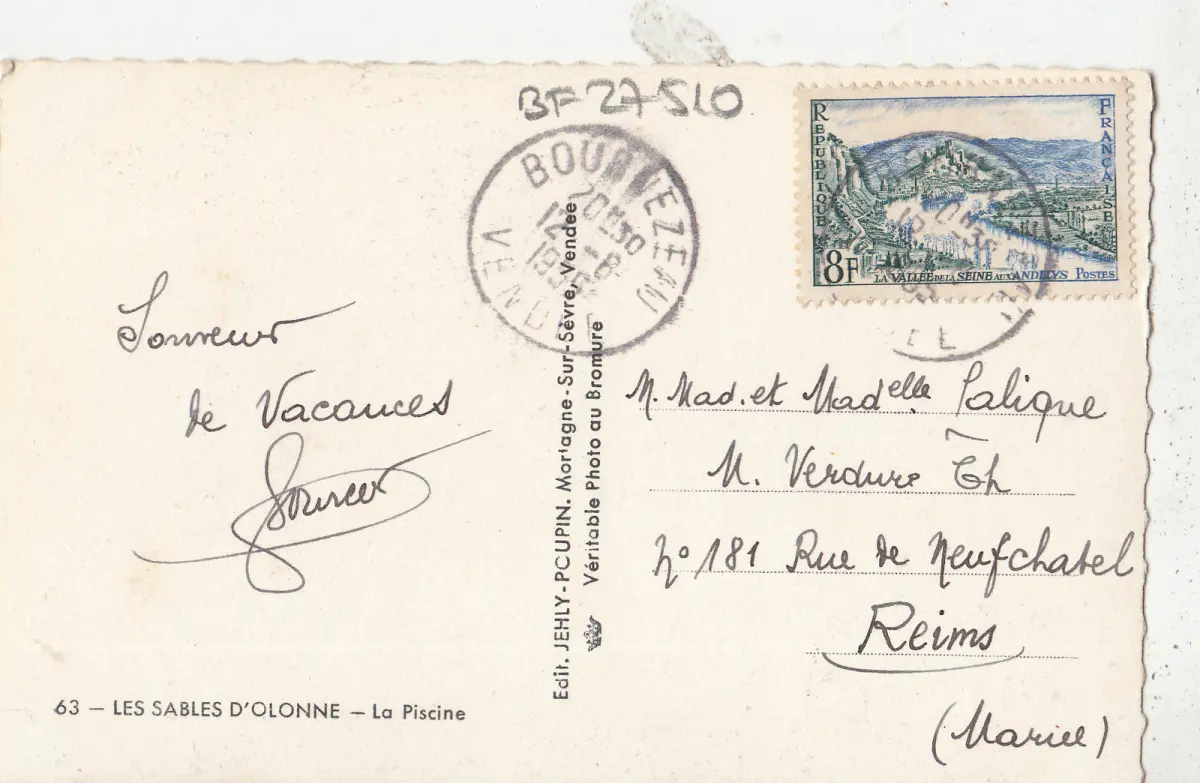 BF 27-510
BOURNEZEAU
20H30
12 -8
VENDEE
REPUBLIQUE FRANÇAISE
8F
LA VALLÉE DE LA SEINE AUX ANDELYS POSTES
Souvenir
de Vacances
M. Mad. et Madelle Palique
M. Verdure Th
N° 181 Rue de Neufchatel
Reims
(Marne)
Edit. JEHLY-POUPIN. Mortagne-Sur-Sèvre, Vendée
Véritable Photo au Bromure
63 — LES SABLES D'OLONNE — La Piscine